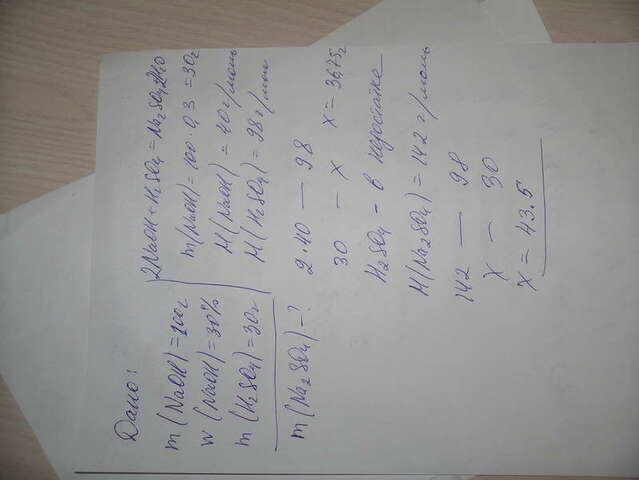 Дано:
m(NaOH)=100г
w(NaOH)=30%
m(H₂SO₄)=30г
m(Na₂SO₄)-?
2NaOH+H₂SO₄=Na₂SO₄+2H₂O
m(NaOH)=100·0,3=30г
M(NaOH)=40г/моль
M(H₂SO₄)=98г/моль
2·40 — 98
30 — x x=36,75г
H₂SO₄ - в недостатке
M(Na₂SO₄)=142 г/моль
142 — 98
x — 30
x=43.5